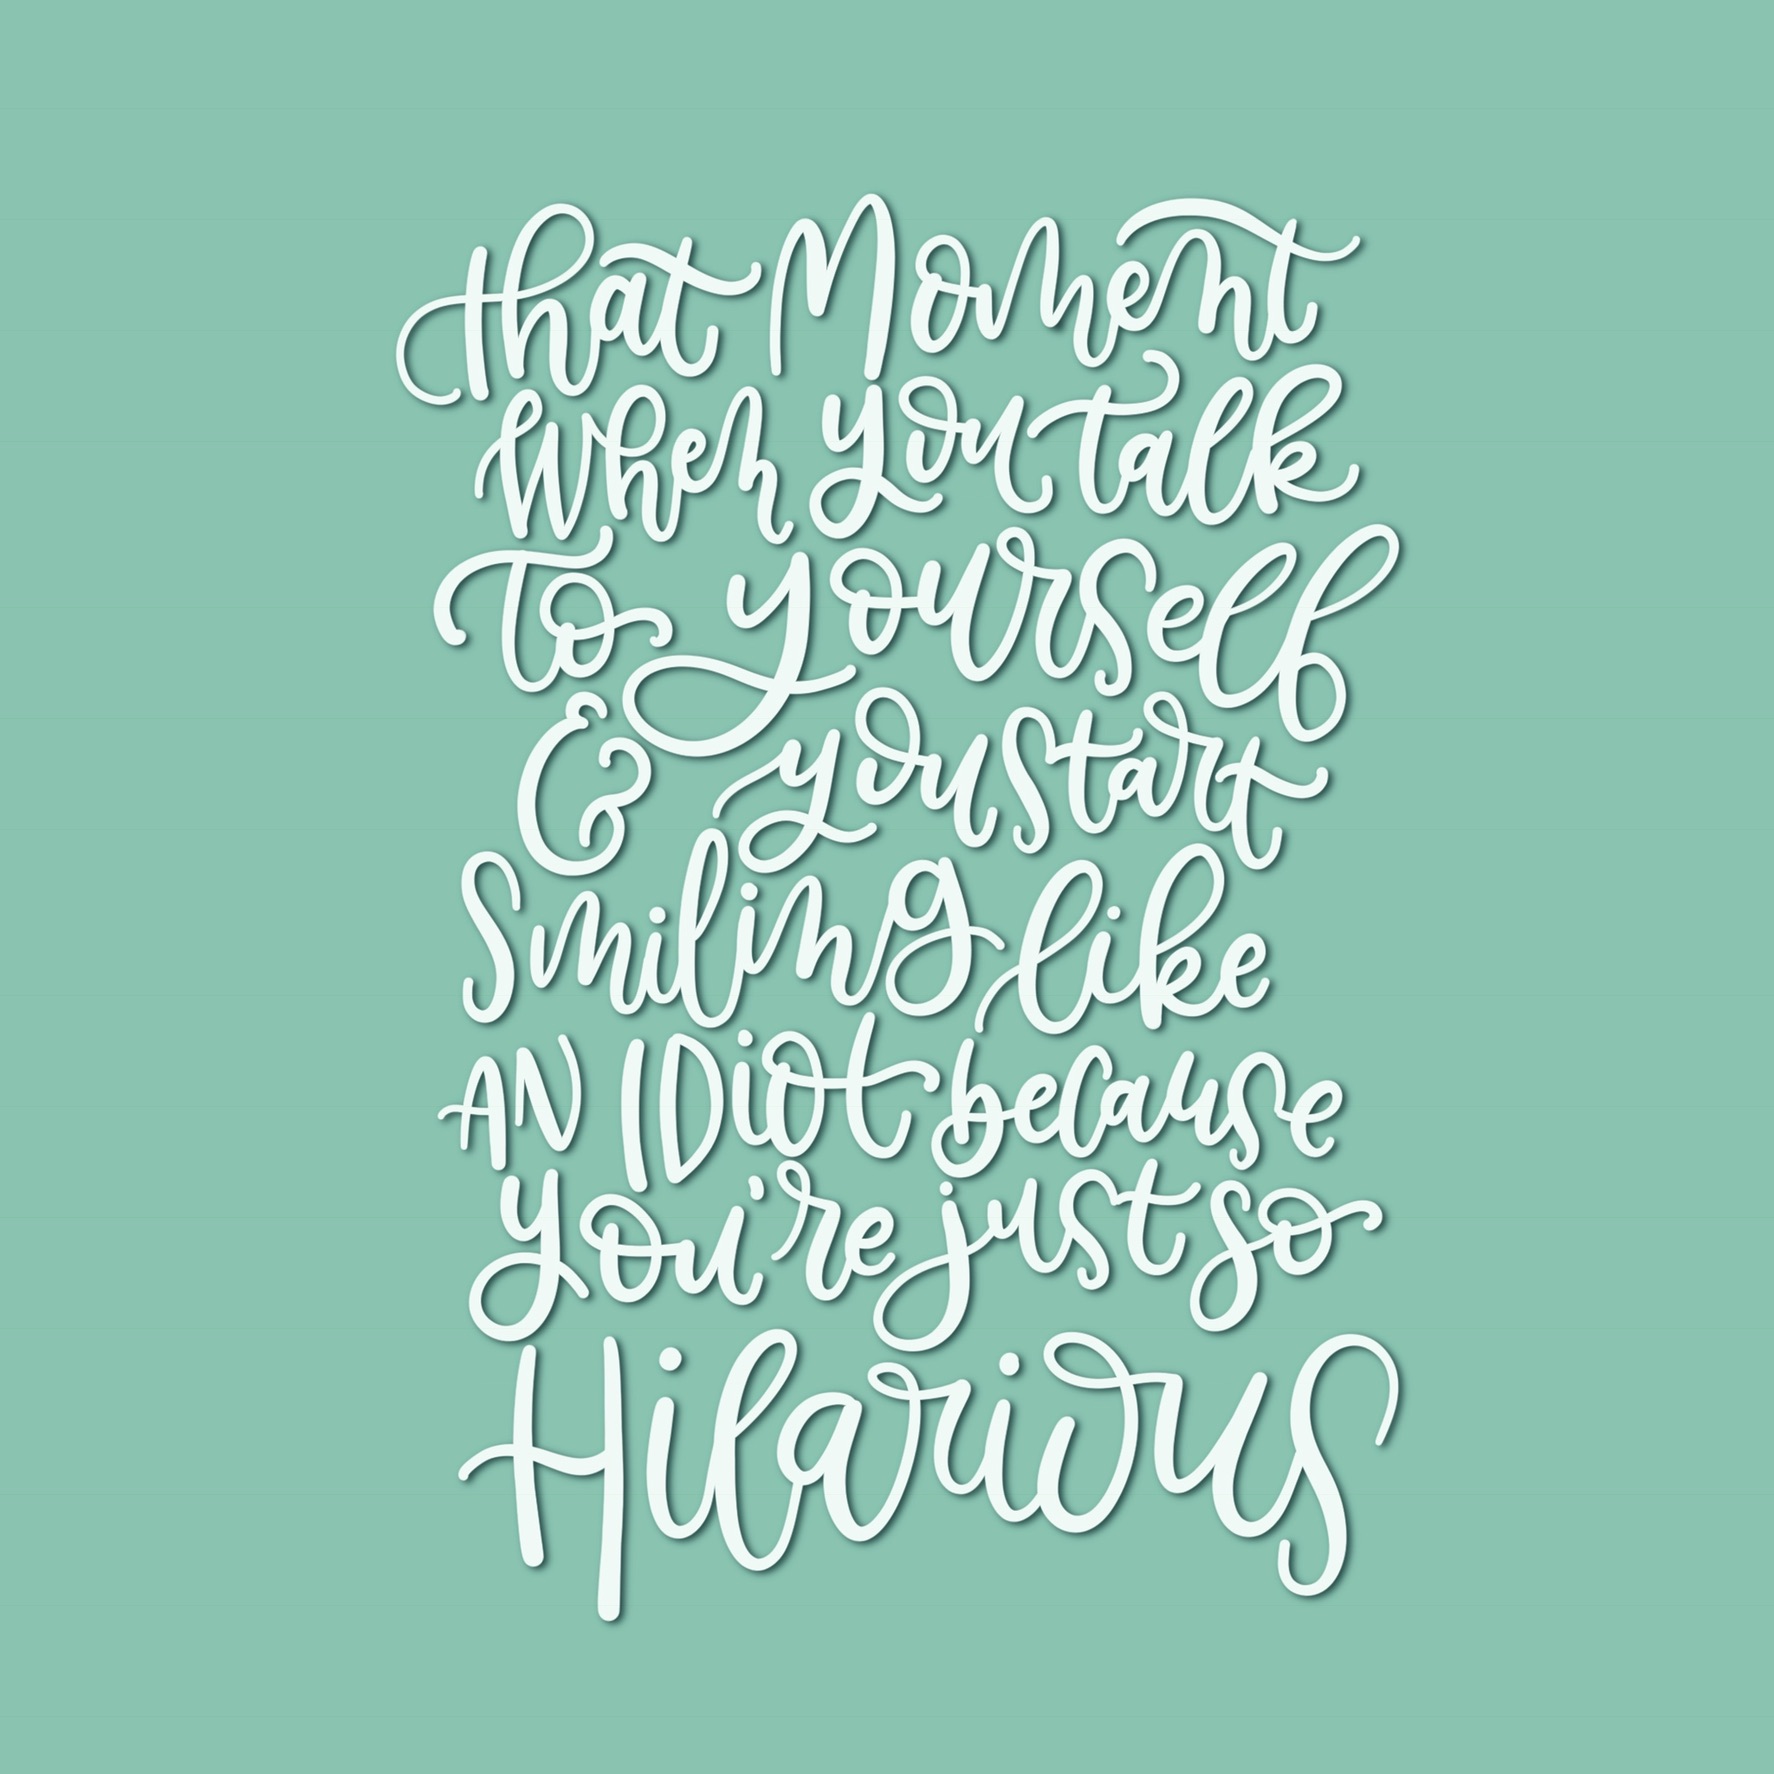 that Moment
When you talk
To yourself
& you start
Smiling like
AN IDiot because
you're just so
Hilarious